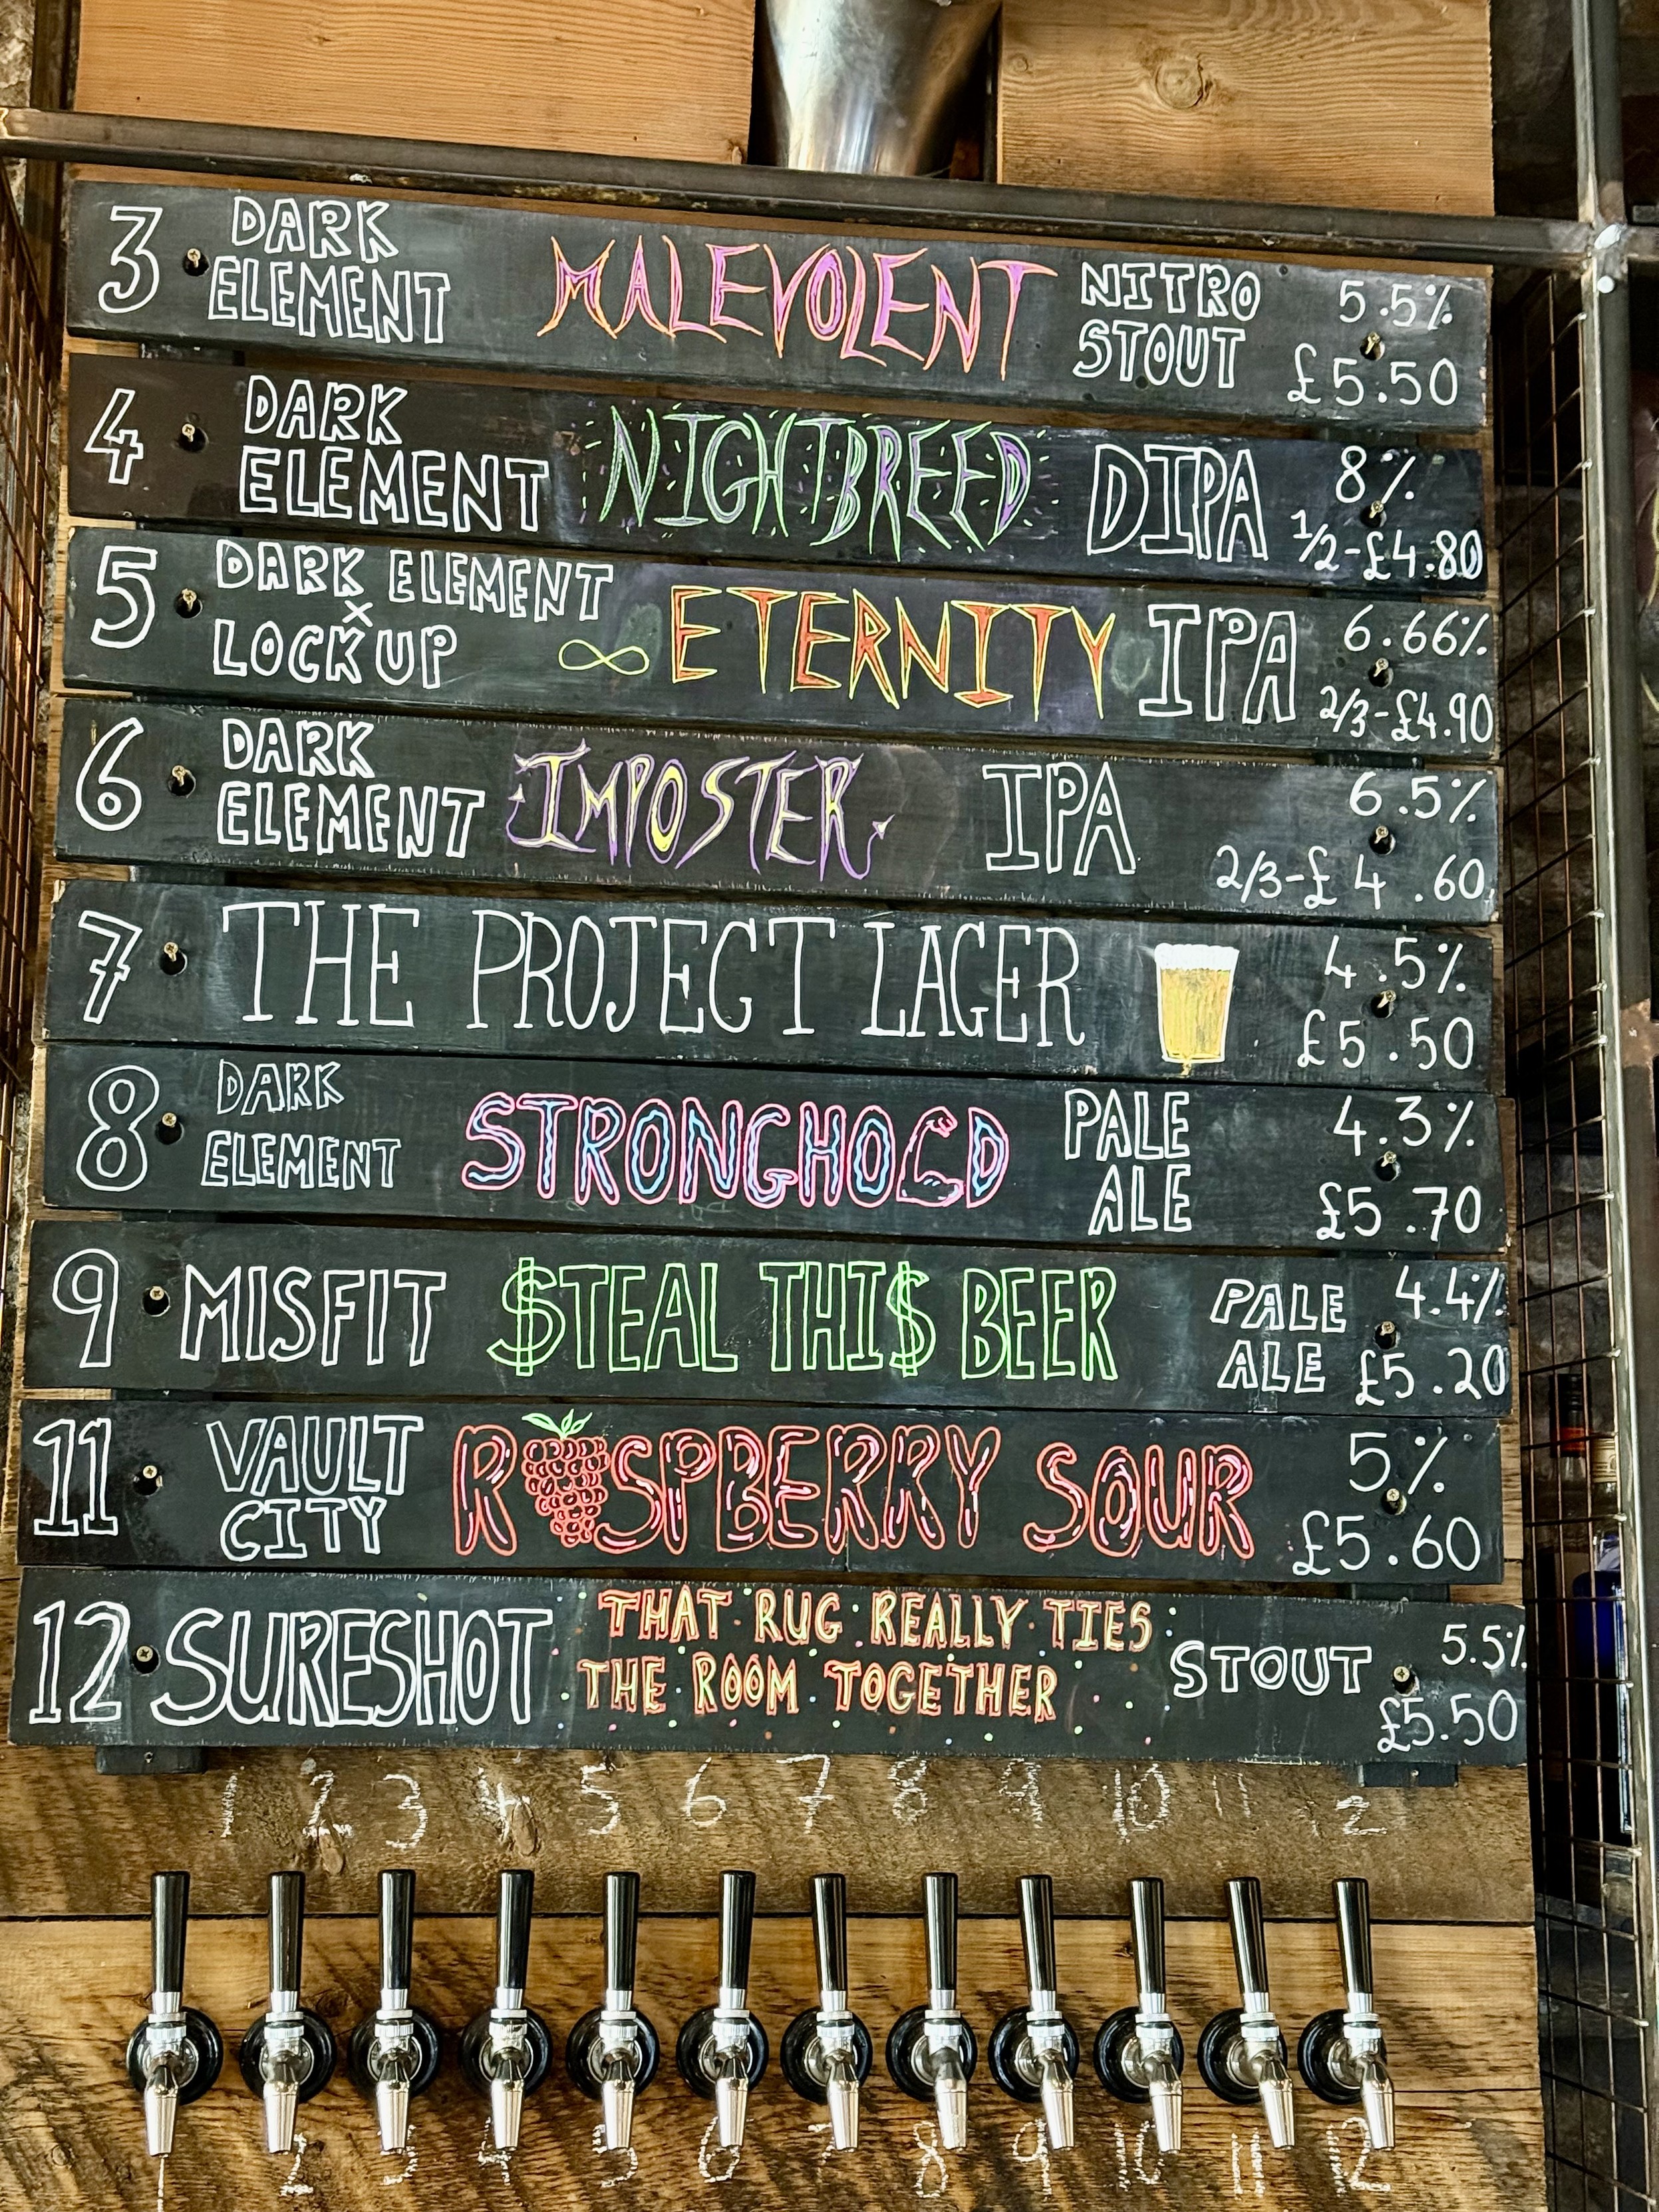 3 DARK ELEMENT MALEVOLENT NITRO STOUT 5.5% £5.50
4 DARK ELEMENT NIGHTBREED DIPA 8% 1/2-£4.80
5 DARK ELEMENT x LOCKUP ∞ ETERNITY IPA 6.66% 2/3-£4.90
6 DARK ELEMENT IMPOSTER IPA 6.5% 2/3-£4.60
7 THE PROJECT LAGER 4.5% £5.50
8 DARK ELEMENT STRONGHOLD PALE ALE 4.3% £5.70
9 MISFIT $TEAL THI$ BEER PALE ALE 4.4% £5.20
11 VAULT CITY RASPBERRY SOUR 5% £5.60
12 SURESHOT THAT RUG REALLY TIES THE ROOM TOGETHER STOUT 5.5% £5.50
1 2 3 4 5 6 7 8 9 10 11 2
1 2 3 4 5 6 7 8 9 10 11 12